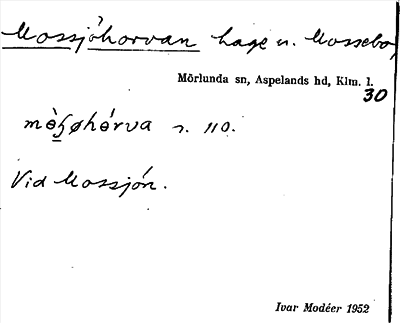 Mossjöhorvan hage u. Mossebo,
Mörlunda sn, Aspelands hd, Klm. l.
30
110.
Vid Mossjön.
Ivar Modéer 1952